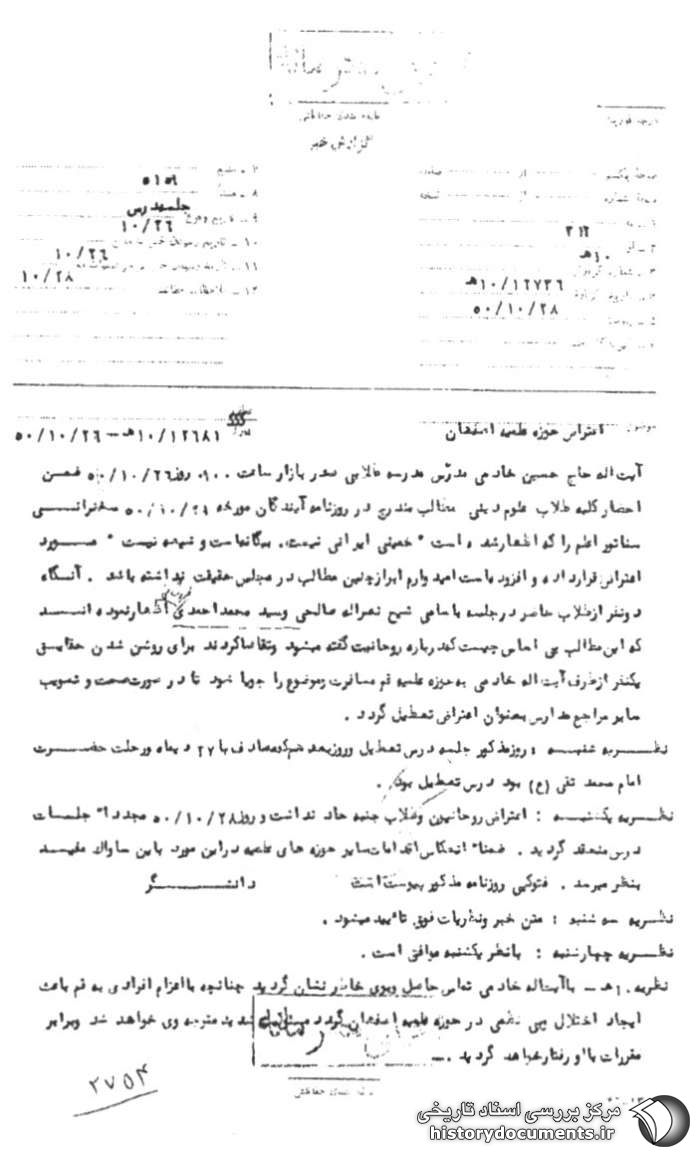 خیلی محرمانه
طبقه بندی حفاظتی
گزارش خبر
۵۱۵۹
جلسه درس
۱۰/۲۶
۱۰/۲۶
۱۰/۲۸
۳۱۲
۱۰هـ
۱۰/۱۲۷۳۶هـ
۵۰/۱۰/۲۸
موضوع اعتراض حوزه علمیه اصفهان
۱۰/۱۲۶۸۱هـ – ۵۰/۱۰/۲۶
آیت اله حاج حسین خادمی مدرس مدرسه طلابی صدر بازار ساعت ۹۰۰ روز ۵۰/۱۰/۲۶ ضمن
احضار کلیه طلاب علوم دینی مطالب مندرج در روزنامه آیندگان مورخه ۵۰/۱۰/۲۱ سخنرانی
سناتور اعلم را که اظهار شده است " خمینی ایرانی نیست، بیگانه است و شیعه نیست " مورد
اعتراض قرار داده و افزوده است امیدوارم ابراز چنین مطالب در مجلس حقیقت نداشته باشد . آنگاه
دونفر از طلاب حاضر در جلسه باسامی شیخ نصراله صالحی وسید محمد احمدی اظهار نموده اند
که این مطالب بی اساس چیست که درباره روحانیت گفته میشود وتقاضا کردند برای روشن شدن حقایق
یکنفر از طرف آیت اله خادمی به حوزه علمیه قم مسافرت وموضوع را جویا شود تا در صورت صحت و تصویب
سایر مراجع مدارس بعنوان اعتراض تعطیل گردد .
نظریه شنبه : روز مذکور جلسه درس تعطیل وروز بعد هم که مصادف با ۲۷ دیماه ورحلت حضرت
امام محمد تقی (ع) بود درس تعطیل بود .
نظریه یکشنبه : اعتراض روحانیون وطلاب جنبه حاد نداشت و روز ۵۰/۱۰/۲۸ مجددا" جلسات
درس منعقد گردید . ضمنا" انعکاس اقدامات سایر حوزه های علمیه در این مورد باین ساواک مفید
بنظر میرسد . فتوکپی روزنامه مذکور پیوست است دانشگر
نظریه سه شنبه : متن خبر ونظریات فوق تائید میشود .
نظریه چهارشنبه : بانظر یکشنبه موافق است .
نظریه ۱۰هـ – با آیت اله خادمی تماس حاصل وبوی خاطر نشان گردید چنانچه با اعزام افرادی به قم باعث
ایجاد اختلال وبی نظمی در حوزه علمیه اصفهان گردد مسئولیت شدید متوجه وی خواهد شد وبرابر
مقررات با او رفتار خواهد گردید .
طبقه بندی حفاظتی
۲۷۵۴
مرکز بررسی اسناد تاریخی
historydocuments.ir